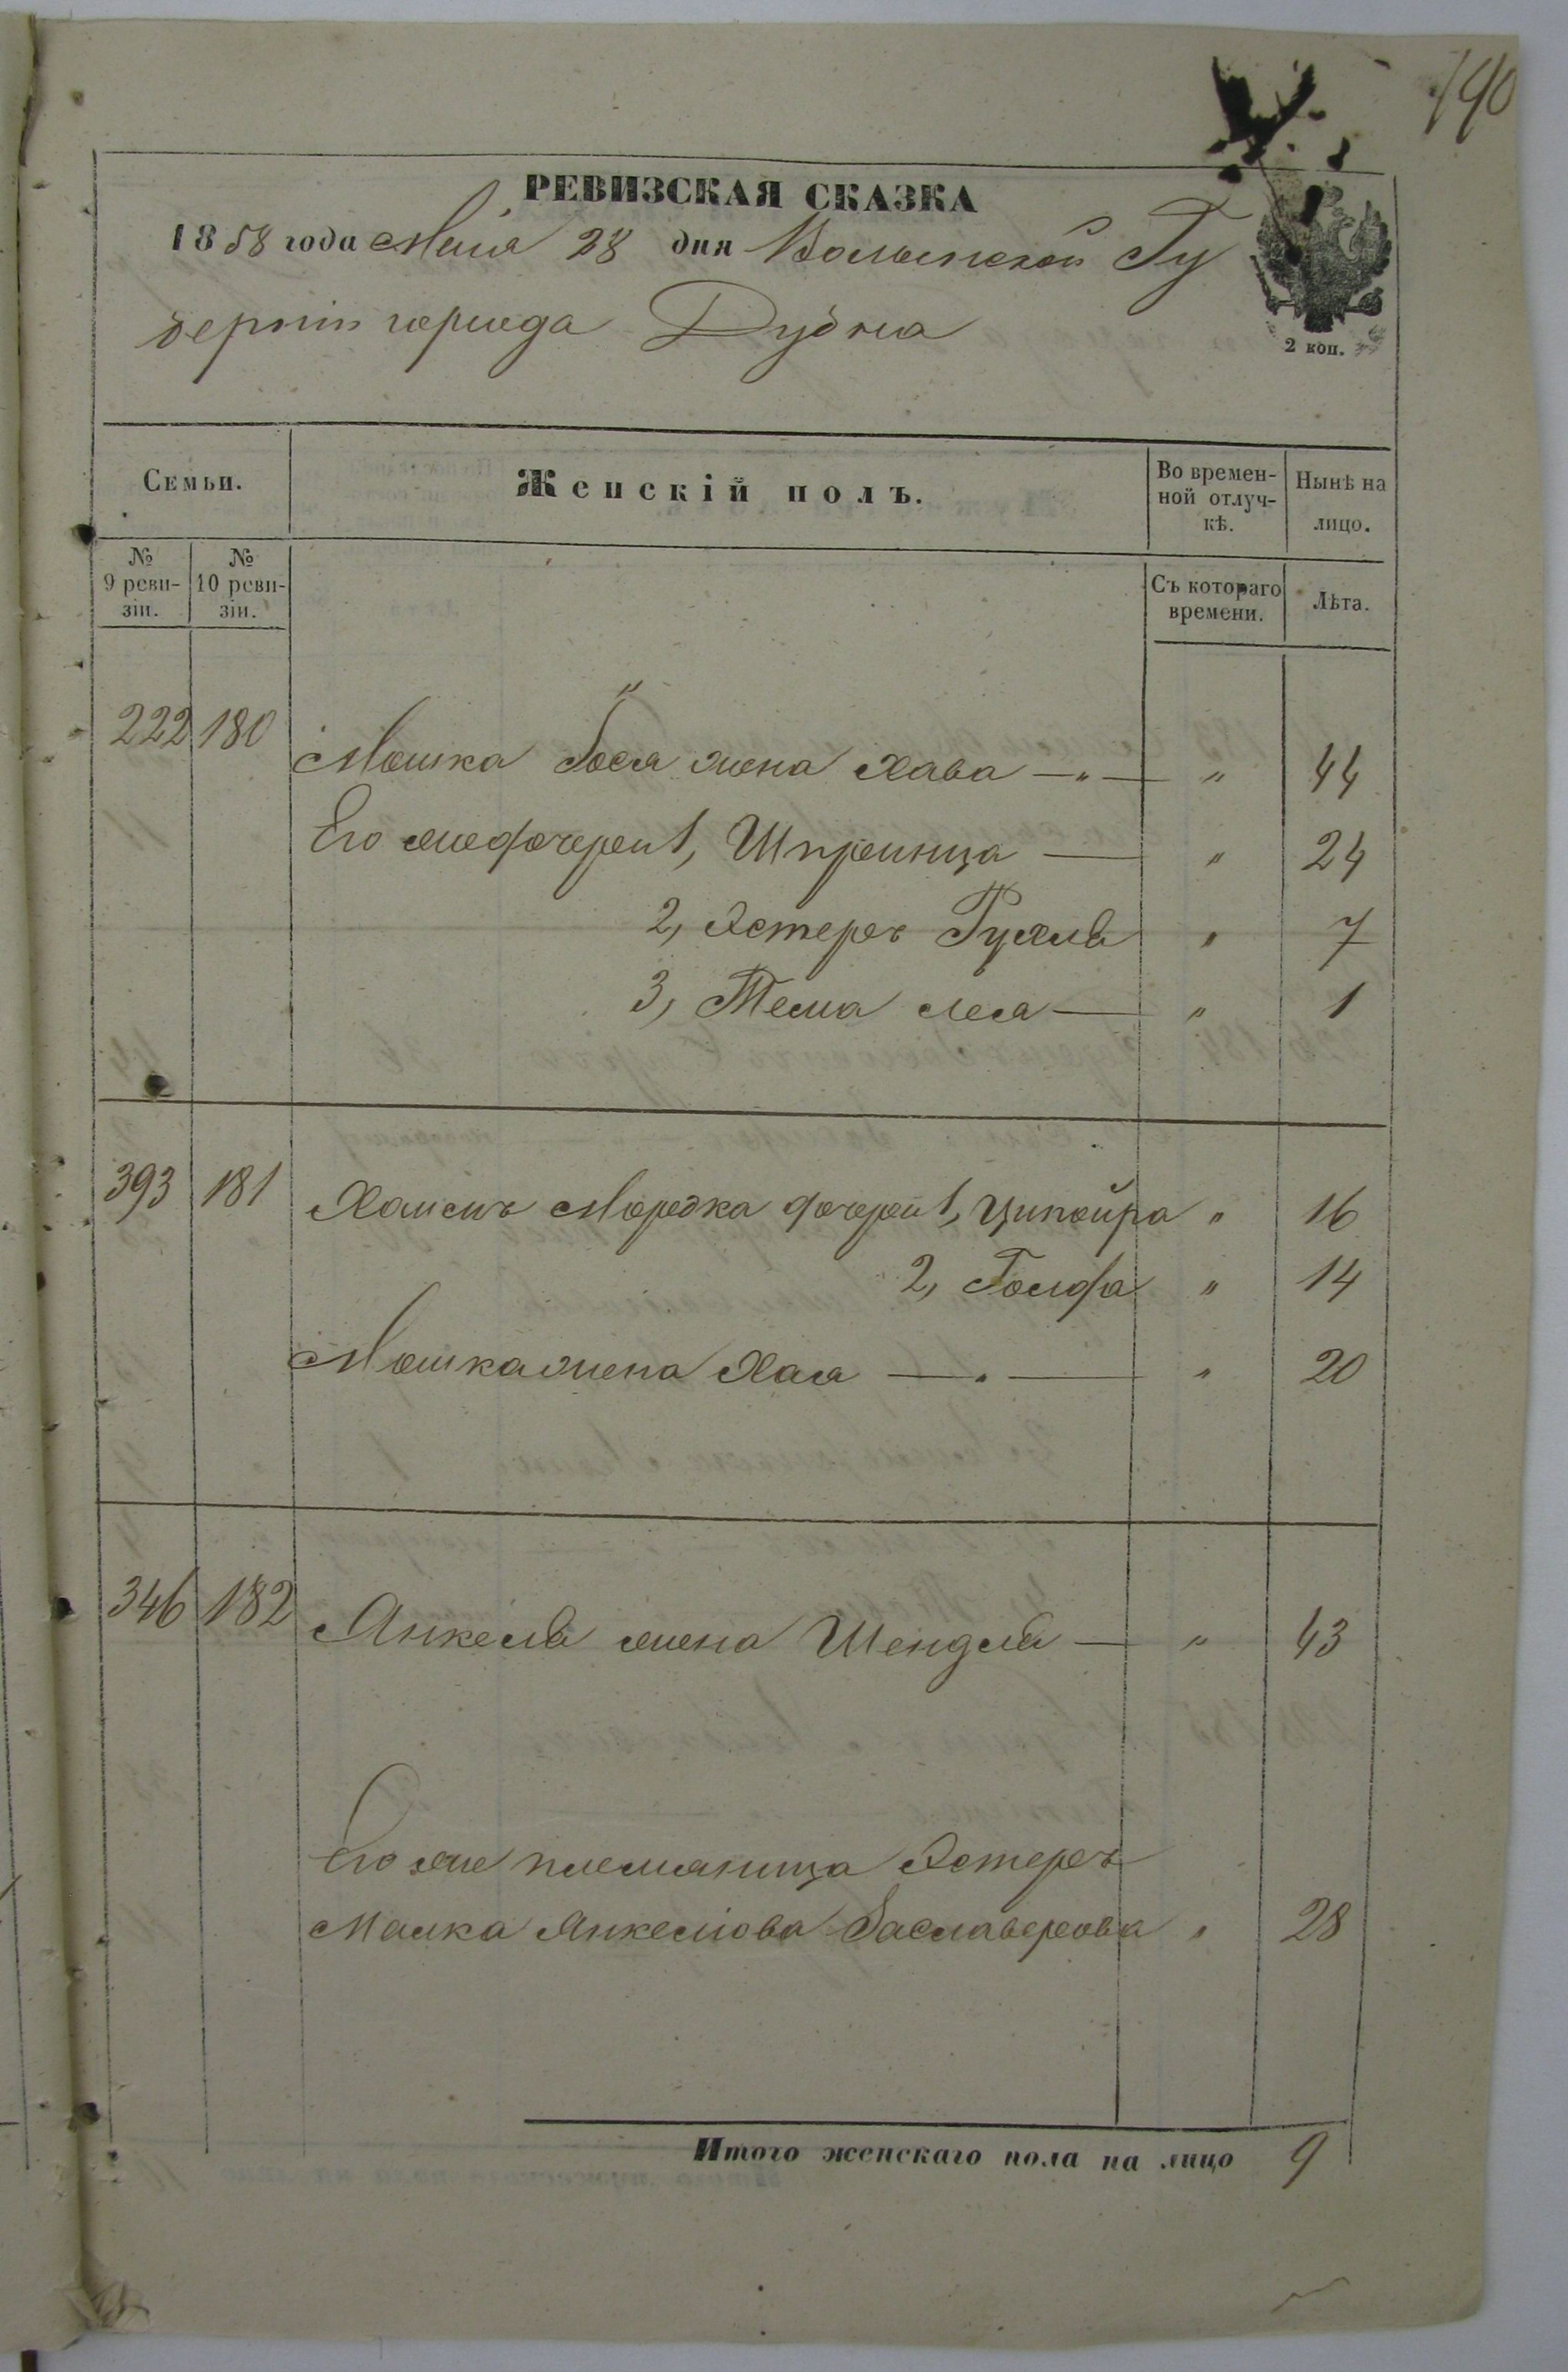 190
РЕВИЗСКАЯ СКАЗКА
1858 года Маія 28 дня Волынской Гу
берніи города Дубна
2 коп.
Семьи.
Женскій полъ.
Во времен-
ной отлуч-
кѣ.
Нынѣ на
лицо.
№
9 реви-
зіи.
№
10 реви-
зіи.
Съ котораго
времени.
Лѣта.
222 180 Мошка Іося жена Хава — " — " 44
Его же дочереи 1, Шпреинца — " 24
2, Эстеръ Рухля " 7
3, Тема Лея — " 1
393 181 Хаимъ Мордка дочерей 1, Ципойра " 16
2, Голда " 14
Мошка жена Хая — " — " 20
346 182 Янкеля жена Шендля — " 43
Его же племяница Эстеръ
Малка Янкелiова Заславерова " 28
Итого женскаго пола на лицо 9